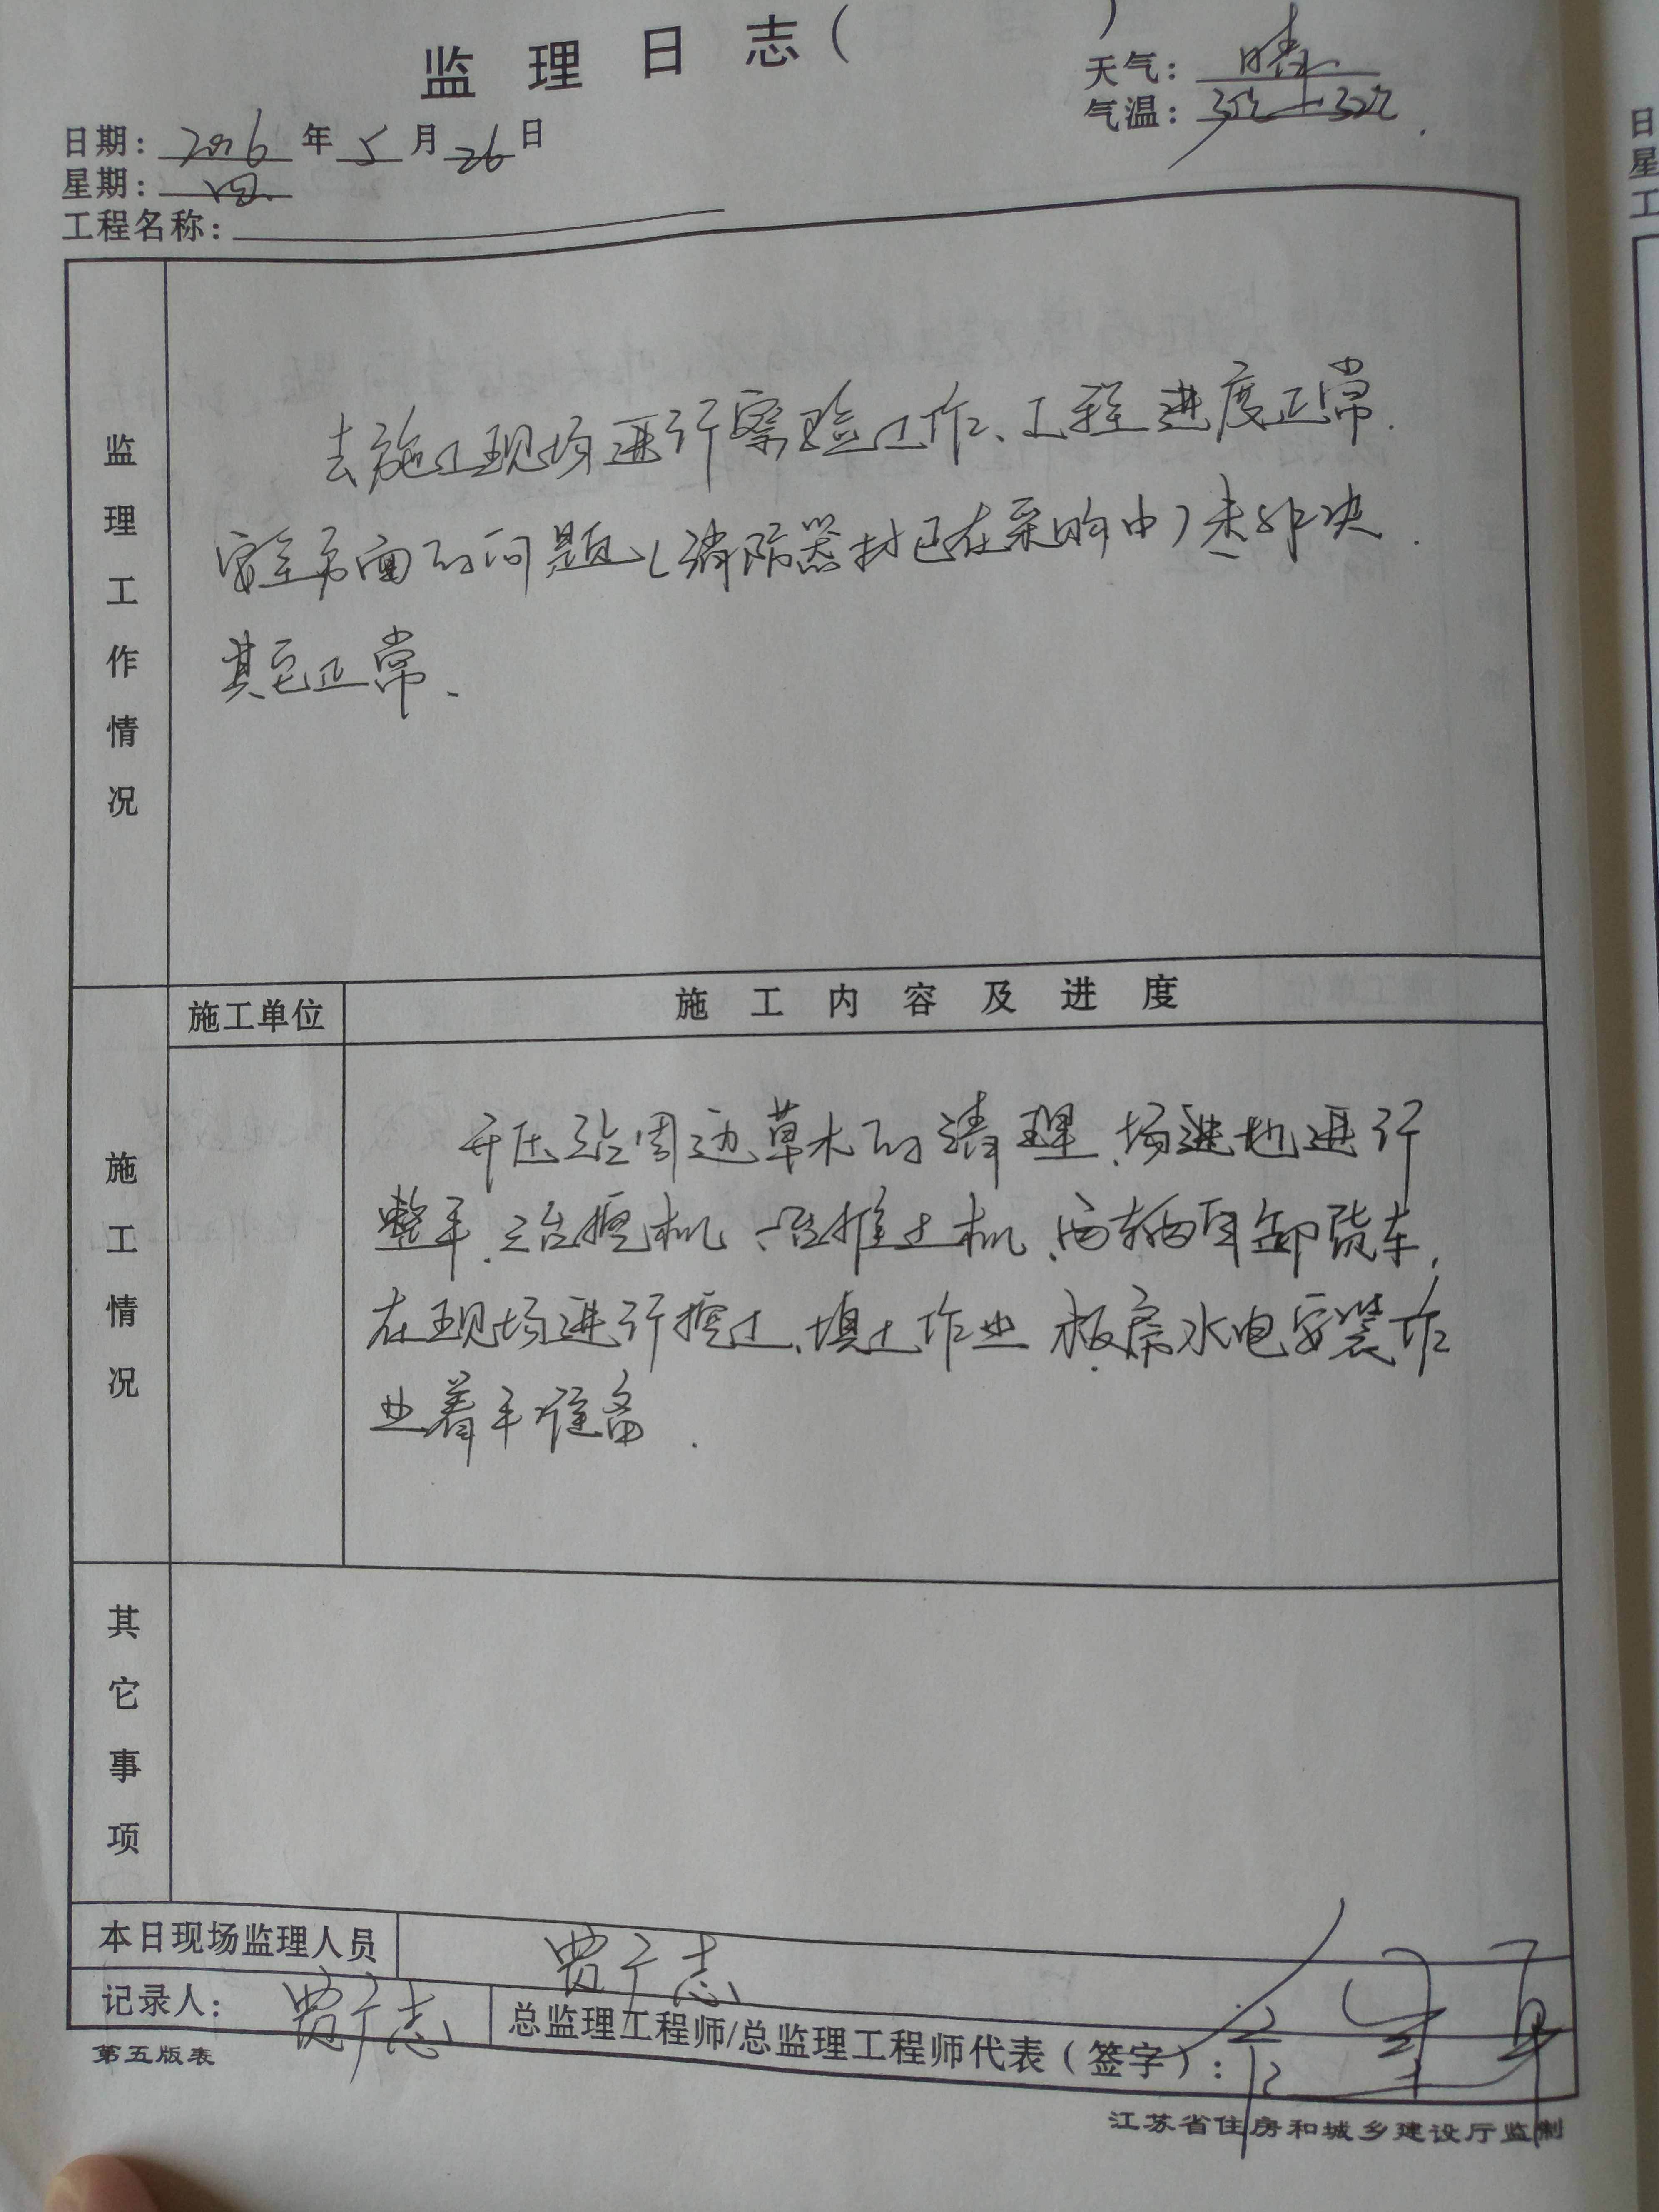 监理日志（ ）
天气：晴
气温：
日期：2016年5月26日
星期：四
工程名称：
监理工作情况
去施工现场进行察验工作、工程进度正常.
安全方面的问题（消防器材已在采购中）未解决.
其它正常.
施工单位
施工内容及进度
施工情况
开压站周边草木的清理、场进地进行
整平、三台挖机 一台推土机、两辆自卸货车,
在现场进行挖土、填土作业 板房水电安装作
业着手准备.
其它事项
本日现场监理人员 贾广志
记录人：贾广志
总监理工程师/总监理工程师代表（签字）：
第五版表
江苏省住房和城乡建设厅监制
日
星
工